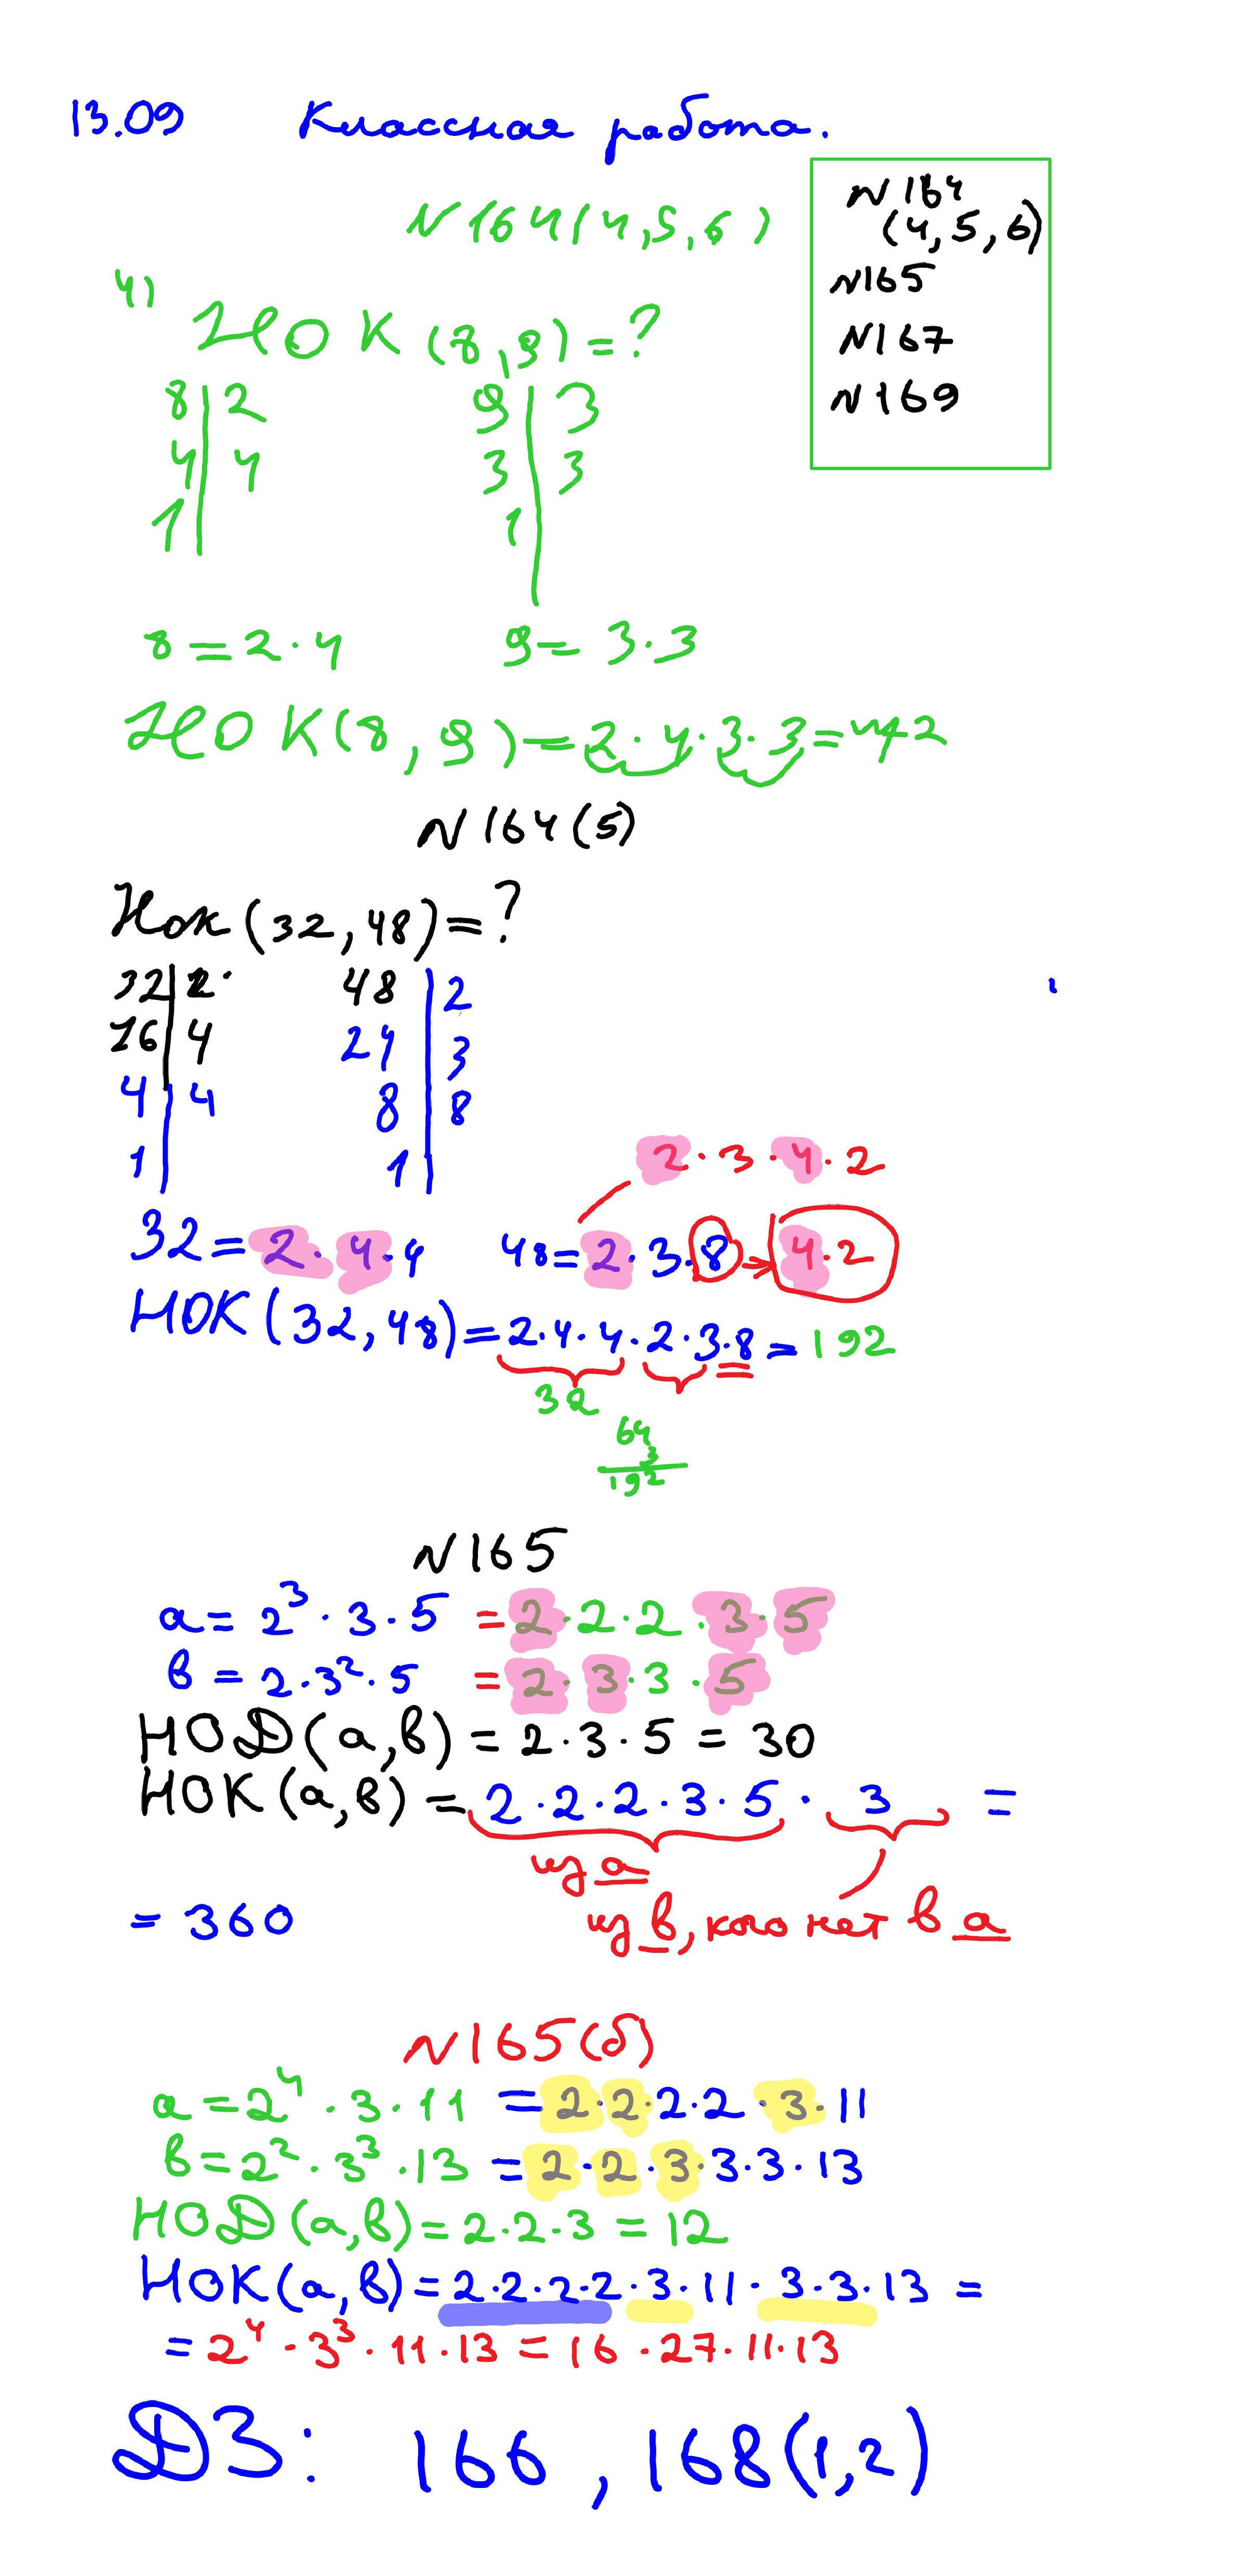 13.09 Классная работа.
N164(4,5,6)
N164
(4,5,6)
N165
N167
N169
4)
НОК (8,9) = ?
8 | 2 9 | 3
4 | 4 3 | 3
1 | 1 |
8 = 2 · 4 9 = 3 · 3
НОК(8, 9) = 2 · 4 · 3 · 3 = 72
N164(5)
Нок(32,48)=?
32 | 2 48 | 2
16 | 4 24 | 3
4 | 4 8 | 8
1 | 1 |
2 · 3 · 4 · 2
32 = 2 · 4 · 4 48 = 2 · 3 · 8 → 4 · 2
НОК(32,48)=2·4·4·2·3·8 = 192
32
64
3
192
N165
a = 2³ · 3 · 5 = 2 · 2 · 2 · 3 · 5
в = 2 · 3² · 5 = 2 · 3 · 3 · 5
НОД(а,в) = 2·3·5 = 30
НОК(а,в) = 2·2·2·3·5 · 3 =
из а
= 360 из в, кого нет в а
N165(б)
a = 2⁴ · 3 · 11 = 2·2·2·2·3·11
в = 2² · 3³ · 13 = 2·2·3·3·3·13
НОД(а,в) = 2·2·3 = 12
НОК(а,в) = 2·2·2·2·3·11·3·3·13 =
= 2⁴ · 3³ · 11 · 13 = 16 · 27 · 11 · 13
ДЗ: 166, 168(1,2)